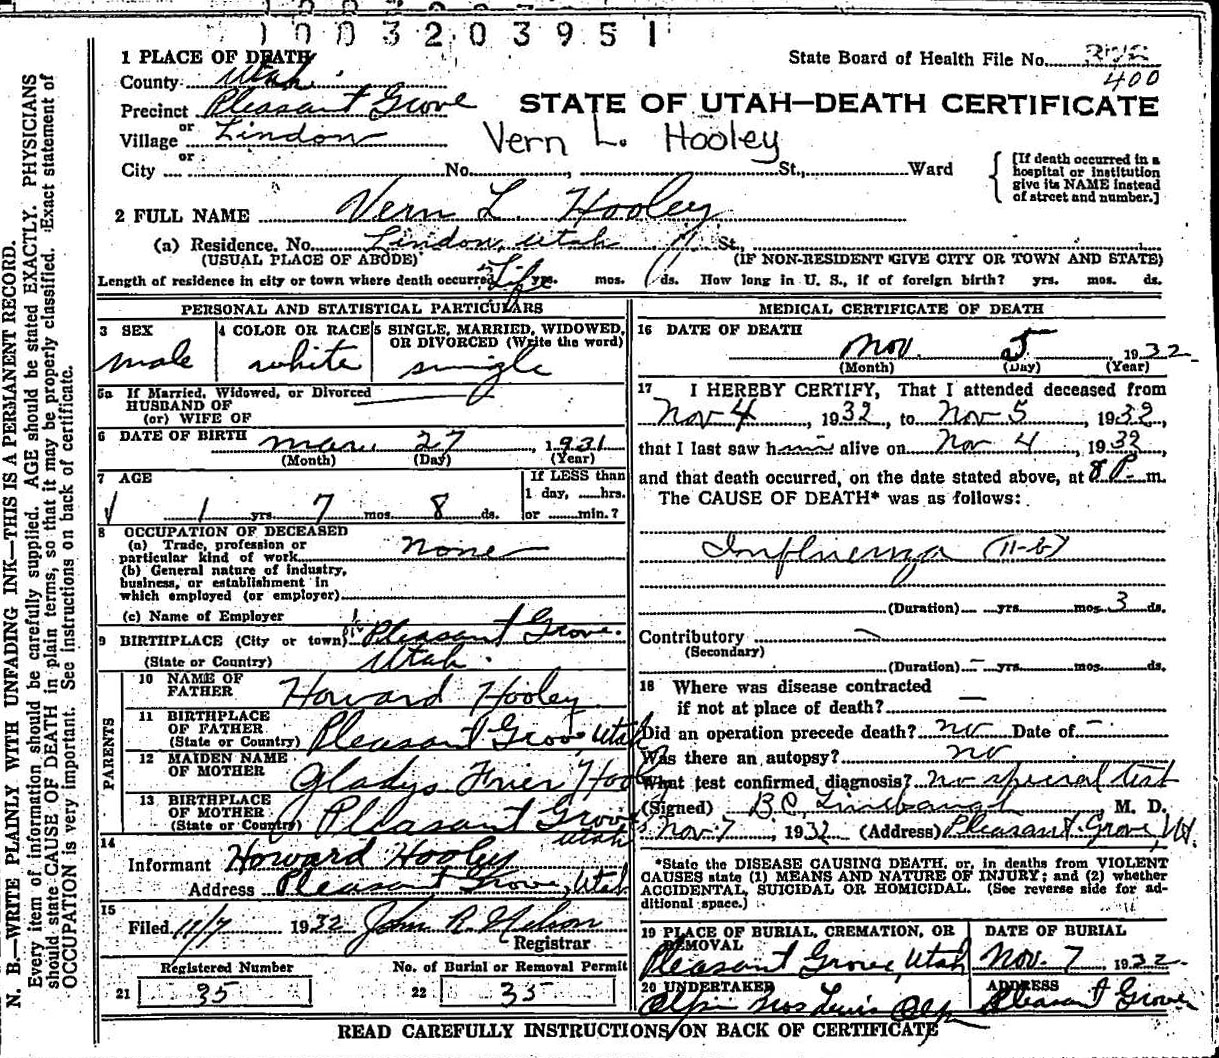 1003203951
1 PLACE OF DEATH
State Board of Health File No.
400
County Utah
Precinct Pleasant Grove
STATE OF UTAH—DEATH CERTIFICATE
or
Village Lindon
Vern L. Hooley
or
City No. St., Ward
[If death occurred in a
hospital or institution
give its NAME instead
of street and number.]
2 FULL NAME Vern L. Hooley
(a) Residence, No. Lindon, Utah St.,
(USUAL PLACE OF ABODE) (IF NON-RESIDENT GIVE CITY OR TOWN AND STATE)
Length of residence in city or town where death occurred Life yrs. mos. ds. How long in U. S., if of foreign birth? yrs. mos. ds.
PERSONAL AND STATISTICAL PARTICULARS
3 SEX
male
4 COLOR OR RACE
white
5 SINGLE, MARRIED, WIDOWED,
OR DIVORCED (Write the word)
single
5a If Married, Widowed, or Divorced
HUSBAND OF
(or) WIFE OF
6 DATE OF BIRTH mar 27, 1931
(Month) (Day) (Year)
7 AGE
1 yrs. 7 mos. 8 ds.
If LESS than
1 day, hrs.
or min.?
8 OCCUPATION OF DECEASED
(a) Trade, profession or
particular kind of work none
(b) General nature of industry,
business, or establishment in
which employed (or employer)
(c) Name of Employer
9 BIRTHPLACE (City or town) Pleasant Grove.
(State or Country) Utah.
PARENTS
10 NAME OF
FATHER Howard Hooley
11 BIRTHPLACE
OF FATHER
(State or Country) Pleasant Grove, Utah
12 MAIDEN NAME
OF MOTHER Gladys Frier Hooley
13 BIRTHPLACE
OF MOTHER
(State or Country) Pleasant Grove
Utah
14
Informant Howard Hooley
Address Pleasant Grove, Utah
15
Filed 11/7 1932 John R. Nelson
Registrar
Registered Number No. of Burial or Removal Permit
21 35 22 35
MEDICAL CERTIFICATE OF DEATH
16 DATE OF DEATH
Nov. 5, 1932
(Month) (Day) (Year)
17 I HEREBY CERTIFY, That I attended deceased from
Nov 4, 1932 to Nov 5, 1932,
that I last saw him alive on Nov 4, 1932
and that death occurred, on the date stated above, at 8 P. m.
The CAUSE OF DEATH* was as follows:
Influenza (11-b)
(Duration) yrs. mos. 3 ds.
Contributory
(Secondary)
(Duration) yrs. mos. ds.
18 Where was disease contracted
if not at place of death? —
Did an operation precede death? no Date of —
Was there an autopsy? no
What test confirmed diagnosis? no special test
(Signed) B.C. Linebaugh, M. D.
Nov 7, 1932 (Address) Pleasant Grove, Ut.
*State the DISEASE CAUSING DEATH, or, in deaths from VIOLENT
CAUSES state (1) MEANS AND NATURE OF INJURY; and (2) whether
ACCIDENTAL, SUICIDAL OR HOMICIDAL. (See reverse side for ad-
ditional space.)
19 PLACE OF BURIAL, CREMATION, OR
REMOVAL
Pleasant Grove, Utah
DATE OF BURIAL
Nov. 7, 1932.
20 UNDERTAKER
ADDRESS
Pleasant Grove
READ CAREFULLY INSTRUCTIONS ON BACK OF CERTIFICATE
N. B.—WRITE PLAINLY WITH UNFADING INK—THIS IS A PERMANENT RECORD.
Every item of information should be carefully supplied. AGE should be stated EXACTLY. PHYSICIANS
should state CAUSE OF DEATH in plain terms, so that it may be properly classified. Exact statement of
OCCUPATION is very important. See instructions on back of certificate.